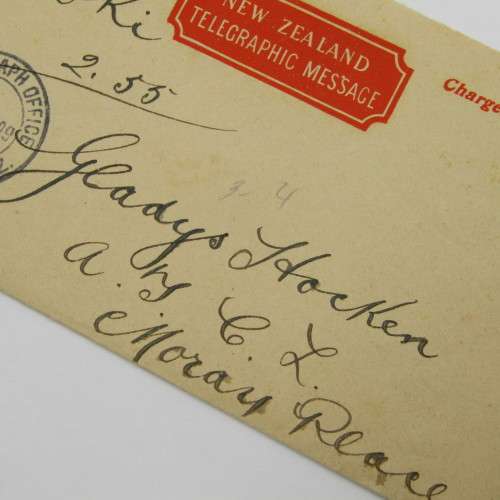 NEW ZEALAND
TELEGRAPHIC MESSAGE
Charge
2.55
APH OFFICE
09
3-4
Gladys Hocken
A. & C. L.
Moray Place